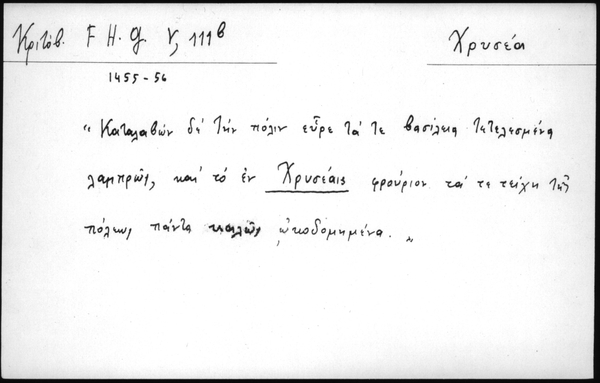 Κριτόβ. F H. G. V, 111β
Χρυσέαι
1455-56
"Καταλαβών δέ τήν πόλιν εὗρε τά τε βασίλεια τετελεσμένα
λαμπρῶς, καί τό ἐν Χρυσέαις φρούριον τά τε τείχη τῆς
πόλεως πάντα καλῶς ᾠκοδομημένα. "